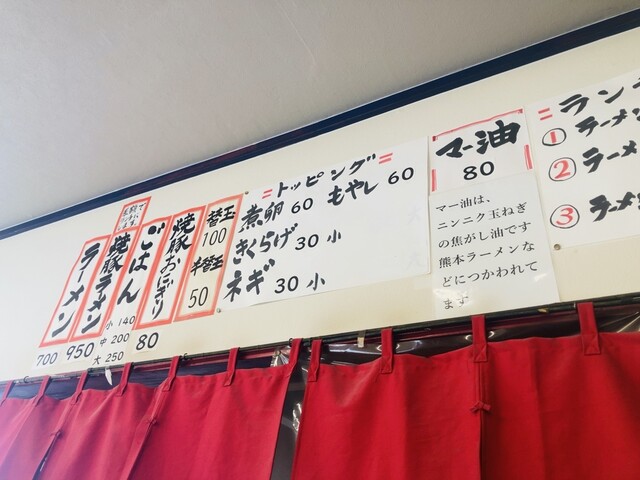 ラーメン
700
焼豚ラーメン
950
ごはん
小 140
中 200
大 250
焼豚おにぎり
80
替玉
100
半替玉
50
=トッピング=
煮卵 60 もやし 60
きくらげ 30 小
ネギ 30 小
マー油
80
マー油は、
ニンニク玉ねぎ
の焦がし油です
熊本ラーメンな
どにつかわれて
ます
=ラン
① ラーメン
② ラーメ
③ ラーメン